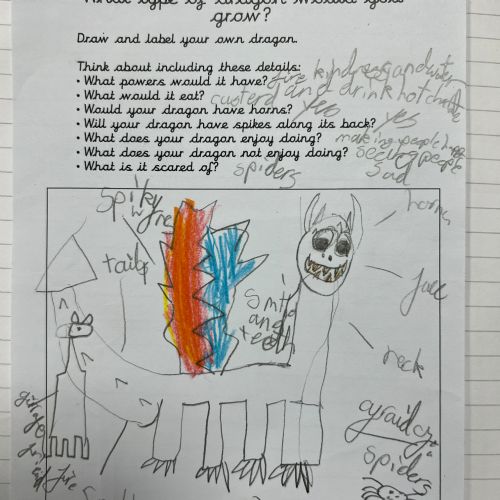 What type of dragon would you
grow?
Draw and label your own dragon.
Think about including these details:
• What powers would it have? fire kindness and water
• What would it eat? custerd and drink hot
• Would your dragon have horns? yes
• Will your dragon have spikes along its back? yes
• What does your dragon enjoy doing? making people
• What does your dragon not enjoy doing? seeing people sad
• What is it scared of? spiders
spiky
tail
horns
face
and
teeth
neck
spiders
fire